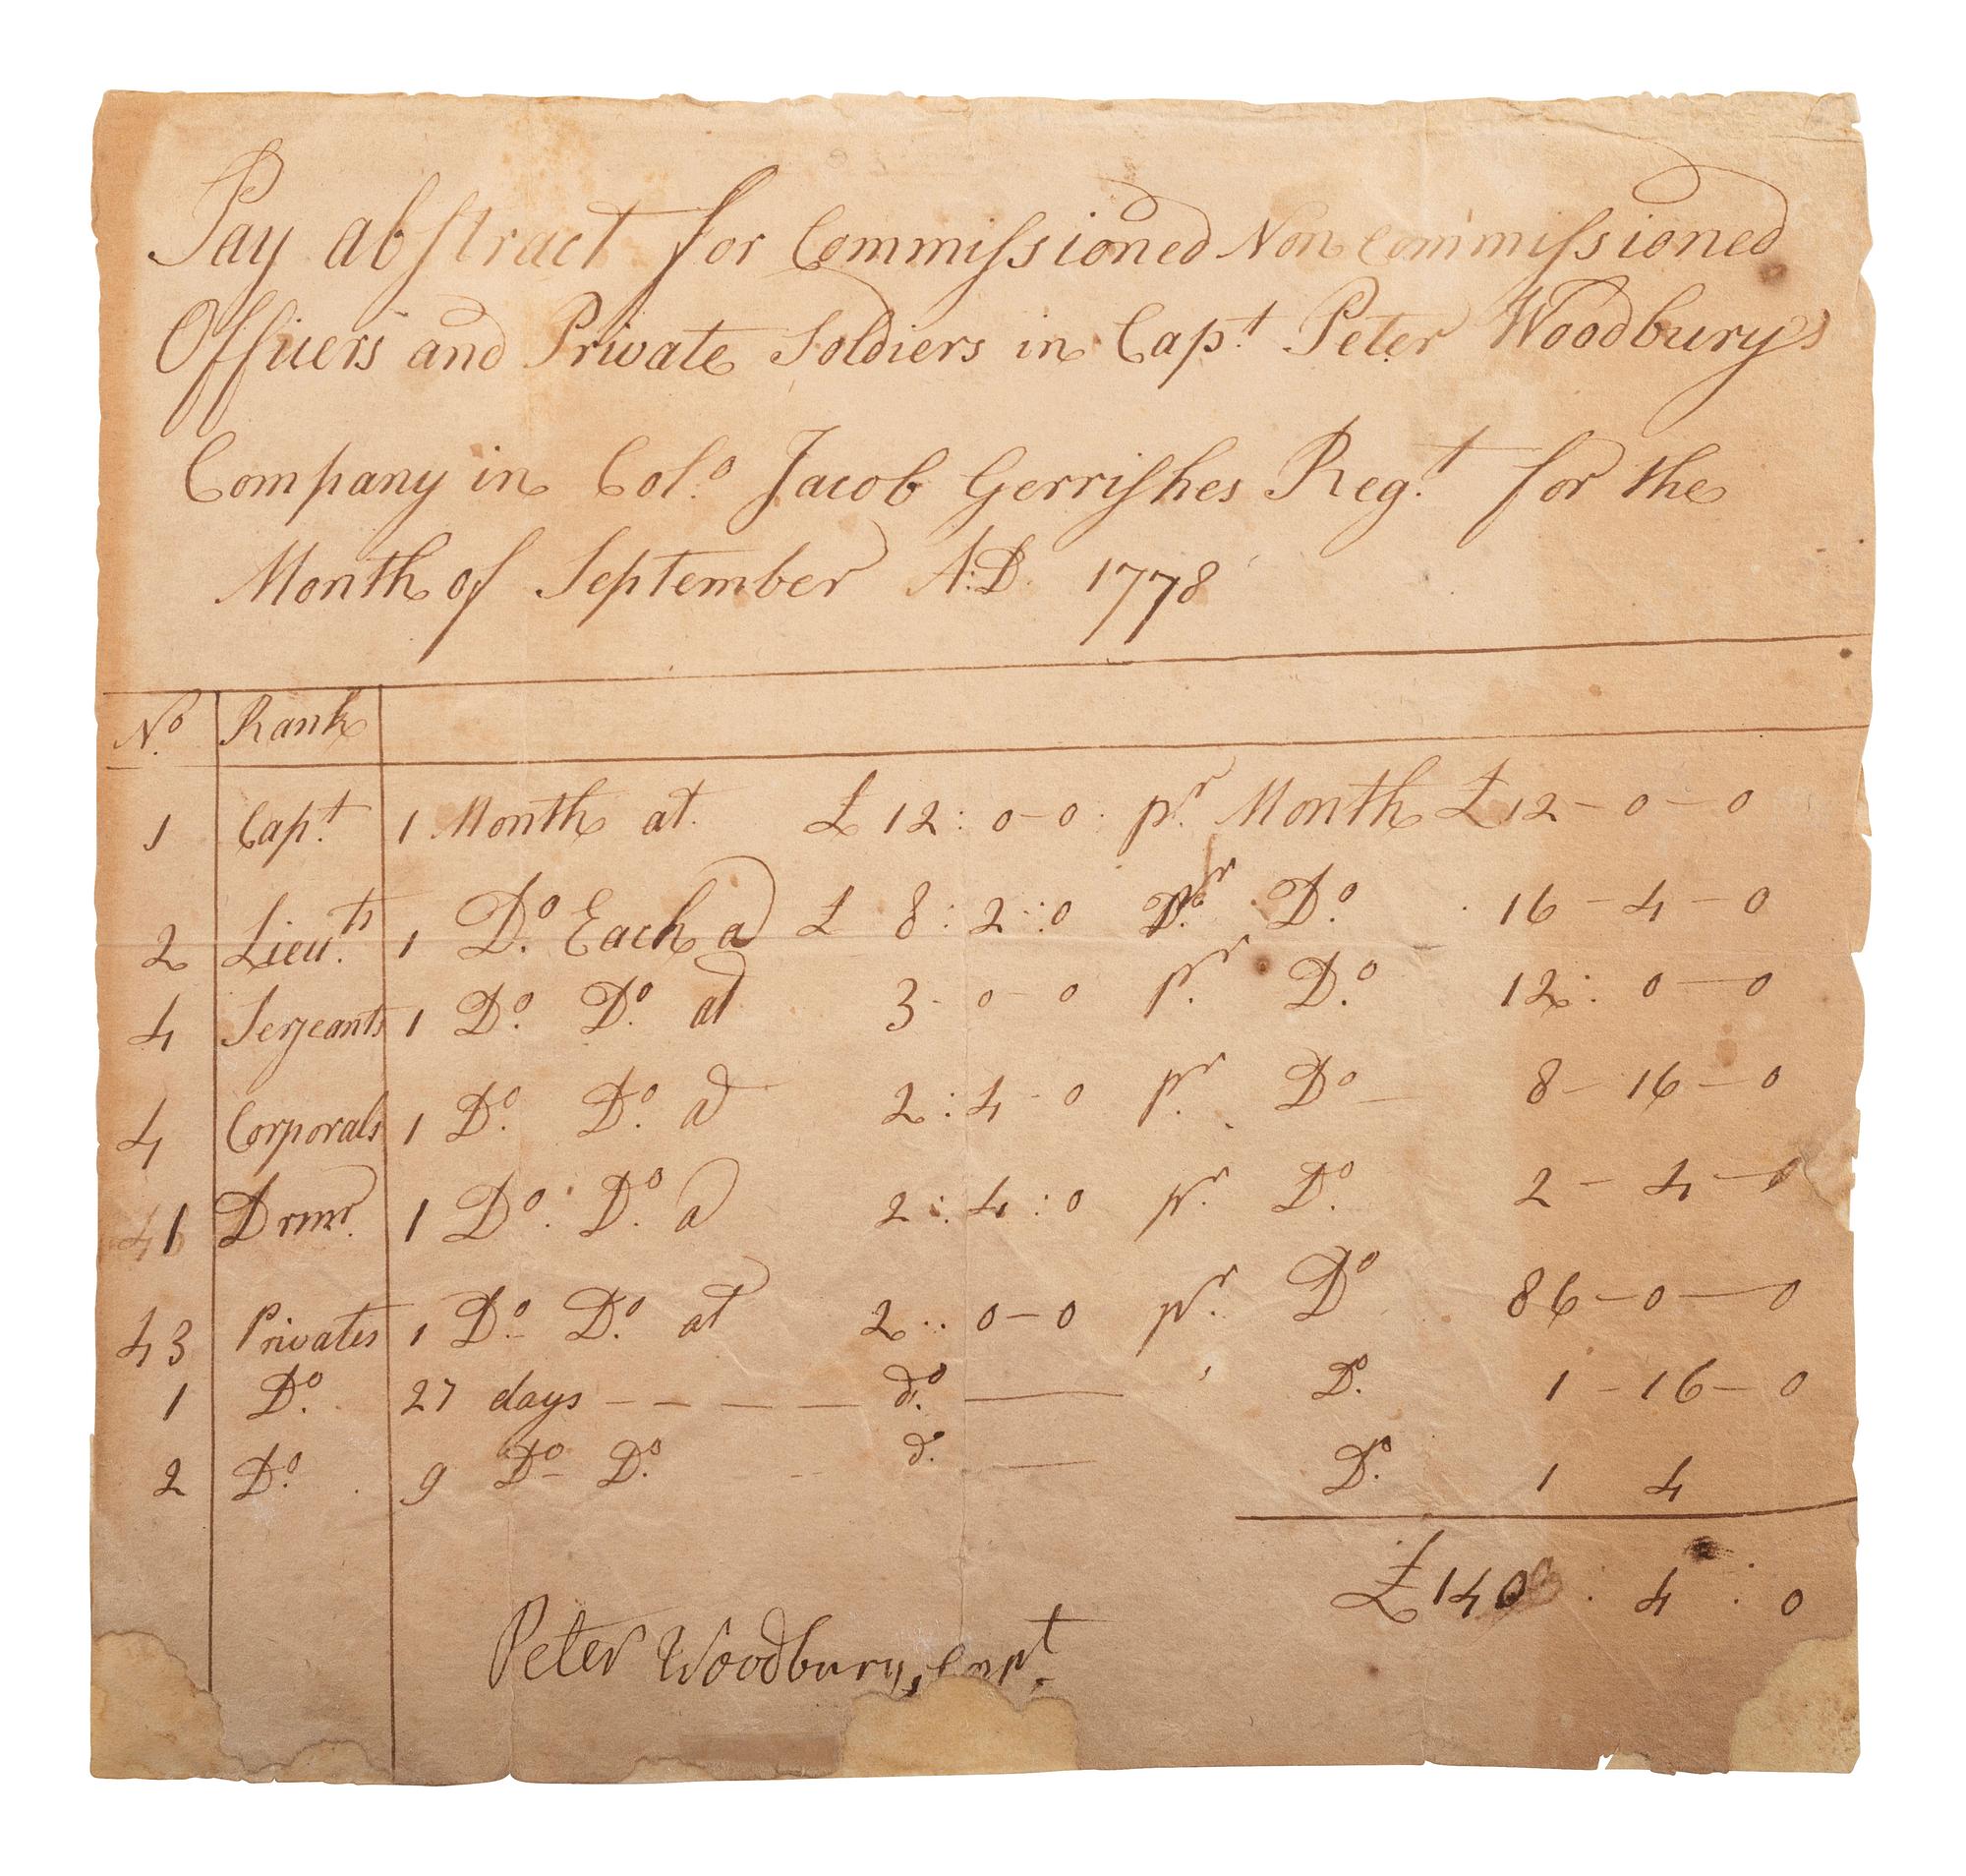 Pay abstract for Commissioned Non Commissioned
Officers and Private Soldiers in Capt Peter Woodburys
Company in Colo Jacob Gerrishes Regt for the
Month of September A:D. 1778
No Rank
1 Capt 1 Month at £ 12 : 0 - 0 . pr Month £12 - 0 - 0
2 Lieuts 1 Do Each a £ 8 : 2 : 0 pr Do 16 - 4 - 0
4 Serjeants 1 Do Do at 3 - 0 - 0 pr Do 12 : 0 - 0
4 Corporals 1 Do Do a 2 : 4 - 0 pr Do 8 - 16 - 0
1 Drmr 1 Do Do a 2 : 4 : 0 pr Do 2 - 4 - 0
43 Privates 1 Do Do at 2 .. 0 - 0 pr Do 86 - 0 - 0
1 Do 27 days - - - - do — Do 1 - 16 - 0
2 Do 9 Do Do do — Do 1 4
£140 : 4 : 0
Peter Woodbury, Capt